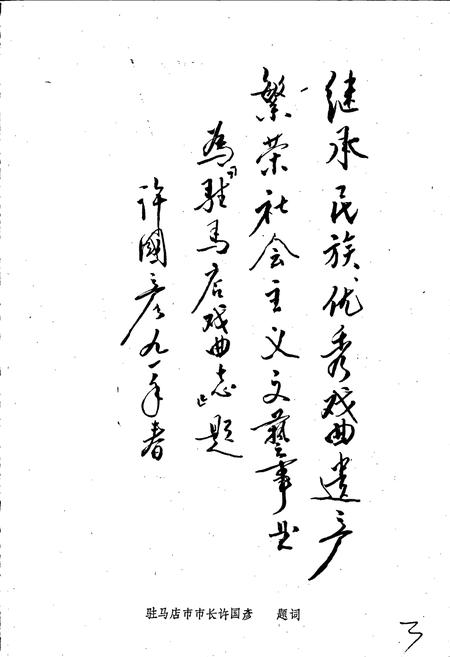 继承民族优秀戏曲遗产
繁荣社会主义文藝事业
為《驻马店戏曲志》题
许國彦九一年春
驻马店市市长许国彦 题词
3